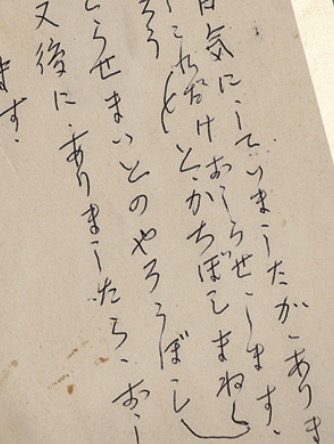 日気にしていましたが、ありま
これだけおしらせします。
と、かちぼしまねし
らせまいとのやろうぼし
又後に、ありましたら、おし
ます。